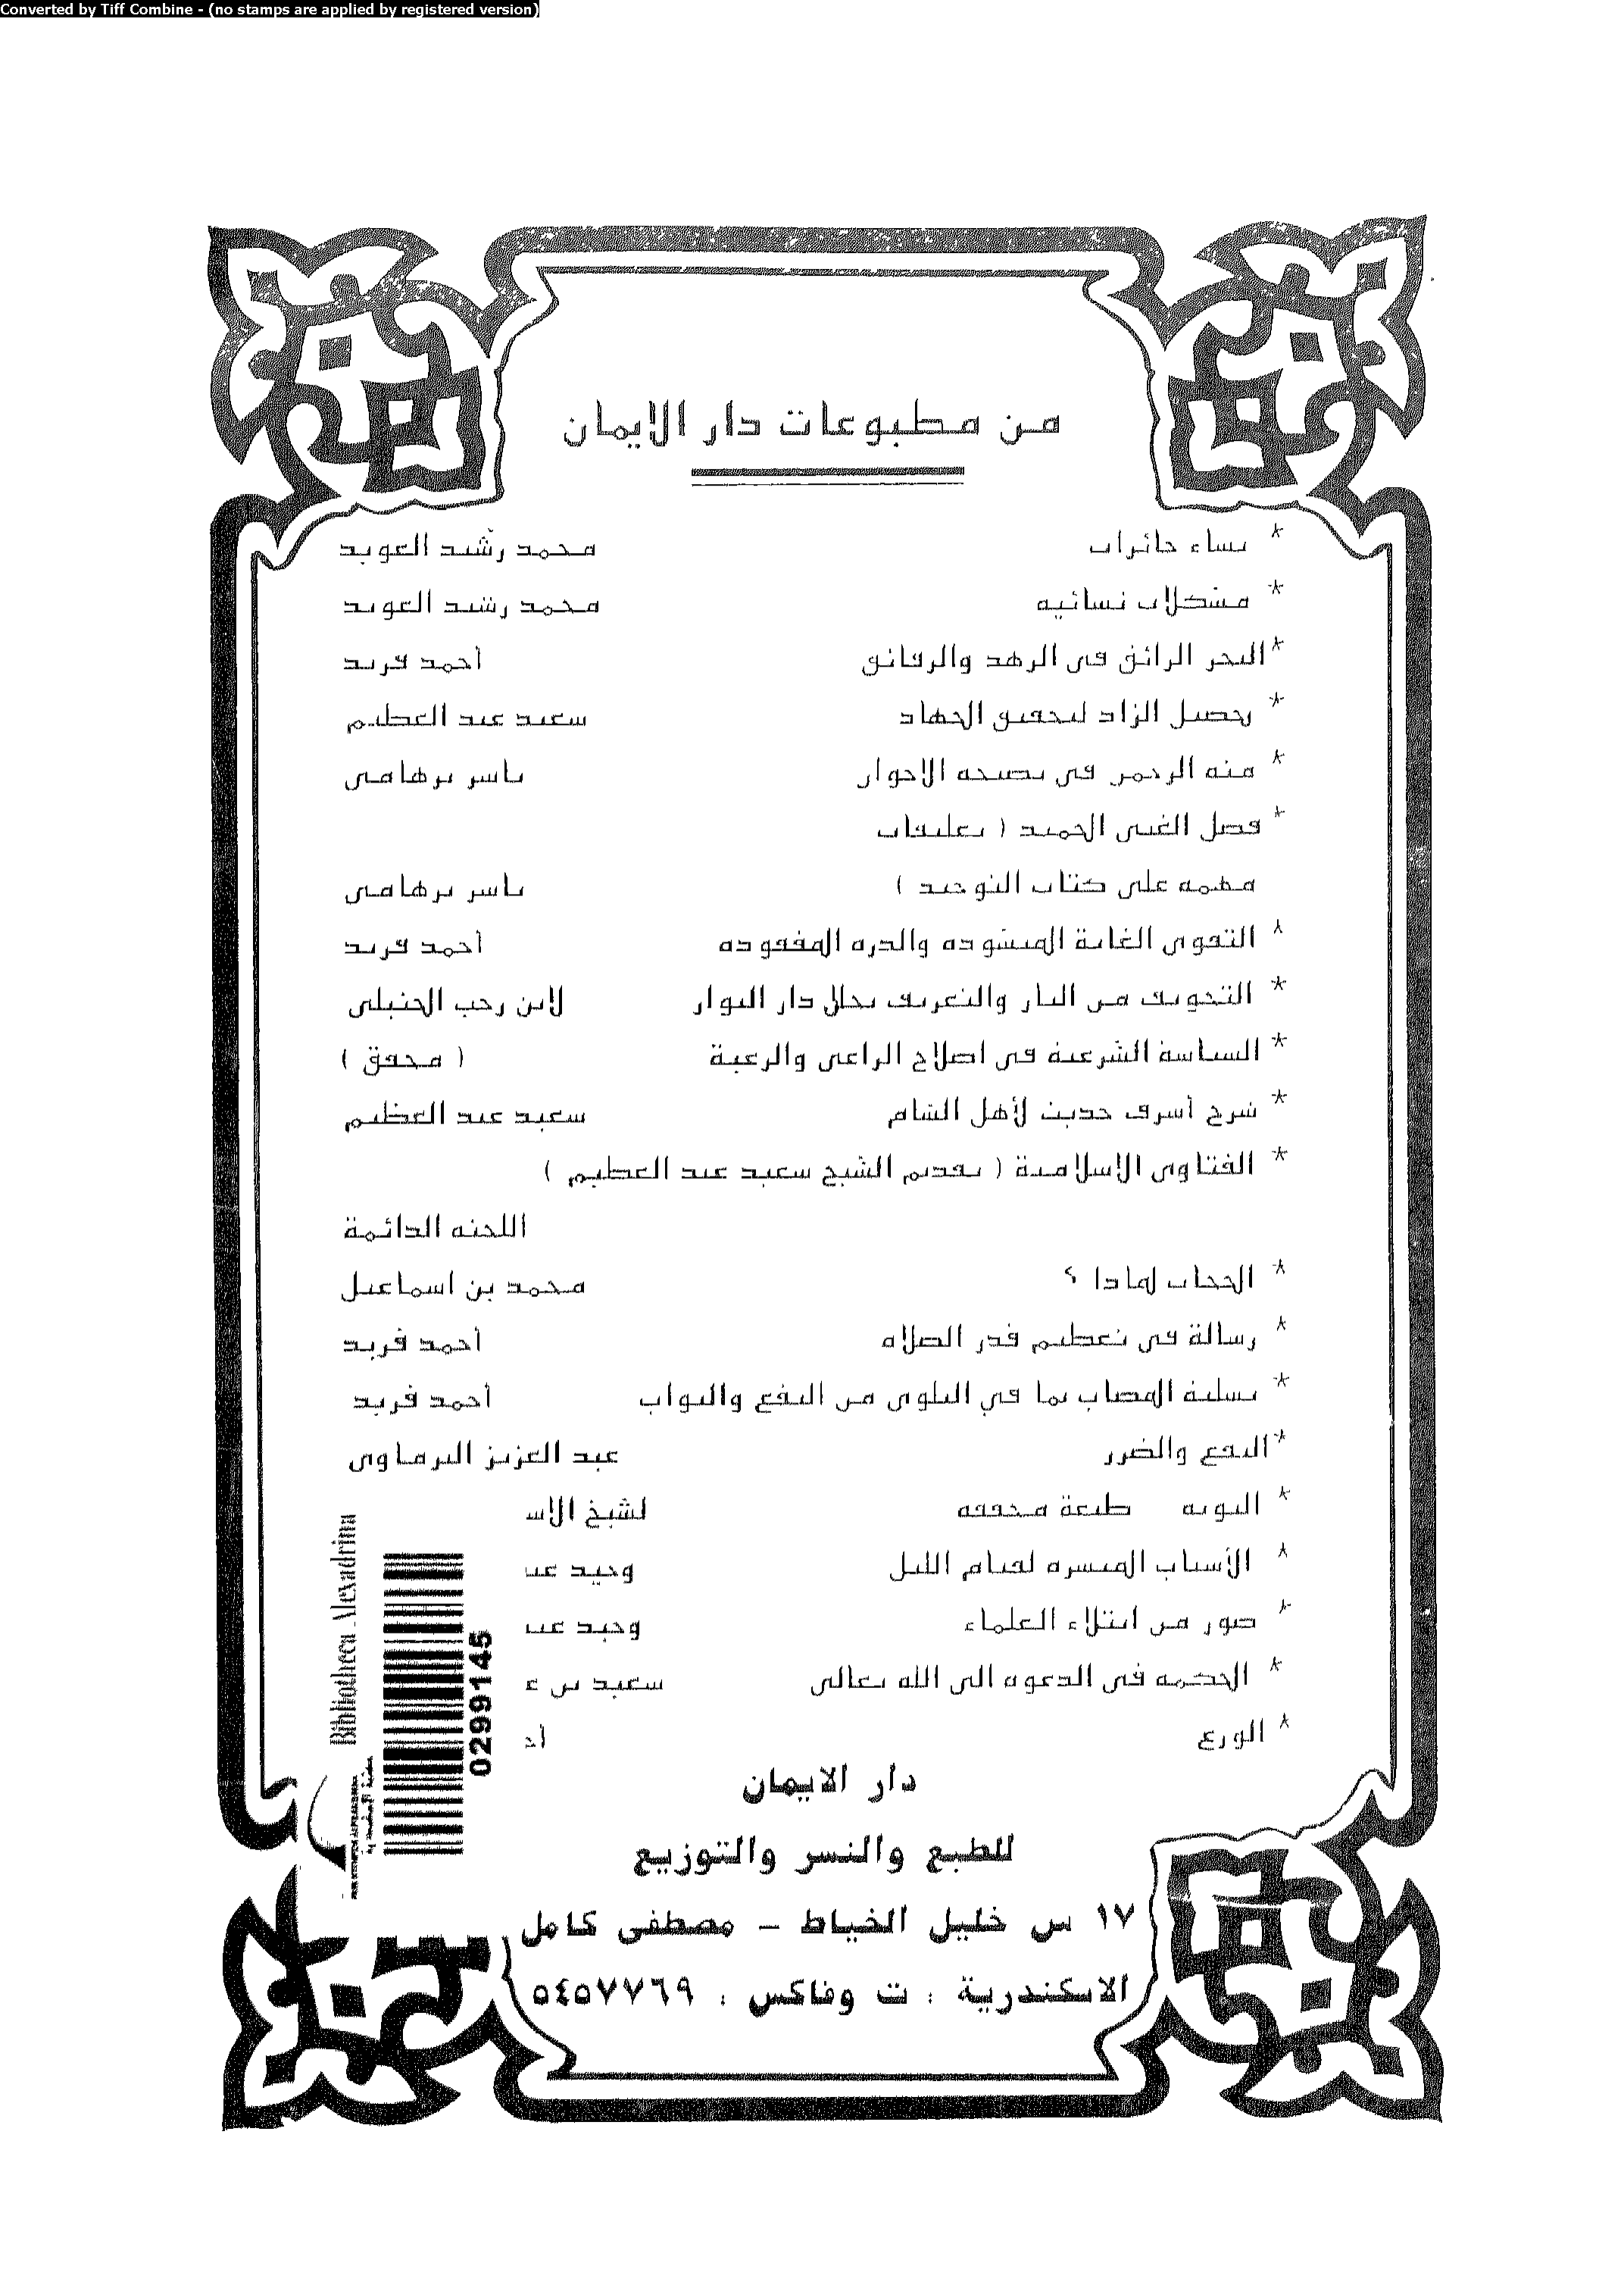 Converted by Tiff Combine - (no stamps are applied by registered version)
من مطبوعات دار الايمان
* نساء حائرات محمد رشيد العويد
* مشكلات نسائيه محمد رشيد العويد
* البحر الرائق فى الزهد والرقائق أحمد فريد
* تحصيل الزاد لتحقيق الجهاد سعيد عبد العظيم
* منه الرحمن فى نصيحه الاخوان ياسر برهامى
* فضل الغنى الحميد ( تعليقات
مهمه على كتاب التوحيد ) ياسر برهامى
* التقوى الغاية المنشوده والدره المفقوده أحمد فريد
* التخويف من النار والتعريف بحال دار البوار لابن رجب الحنبلى
* السياسة الشرعية فى اصلاح الراعى والرعية ( محقق )
* شرح أشرف حديث لأهل الشام سعيد عبد العظيم
* الفتاوى الإسلامية ( تقديم الشيخ سعيد عبد العظيم )
اللجنه الدائمة
* الحجاب لماذا ؟ محمد بن اسماعيل
* رسالة فى تعظيم قدر الصلاه أحمد فريد
* تسلية المصاب بما في البلوى من النفع والثواب أحمد فريد
* النفع والضرر عبد العزيز البرماوى
* التوبه طبعة محققه لشيخ الاس
* الأسباب الميسره لقيام الليل وحيد عب
* صور من ابتلاء العلماء وحيد عب
* الحكمه فى الدعوه الى الله تعالى سعيد بن ع
* الورع أح
دار الايمان
للطبع والنشر والتوزيع
١٧ ش خليل الخياط – مصطفى كامل
الاسكندرية : ت وفاكس : ٥٤٥٧٧٦٩
Bibliotheca Alexandrina
مكتبة الإسكندرية
0299145